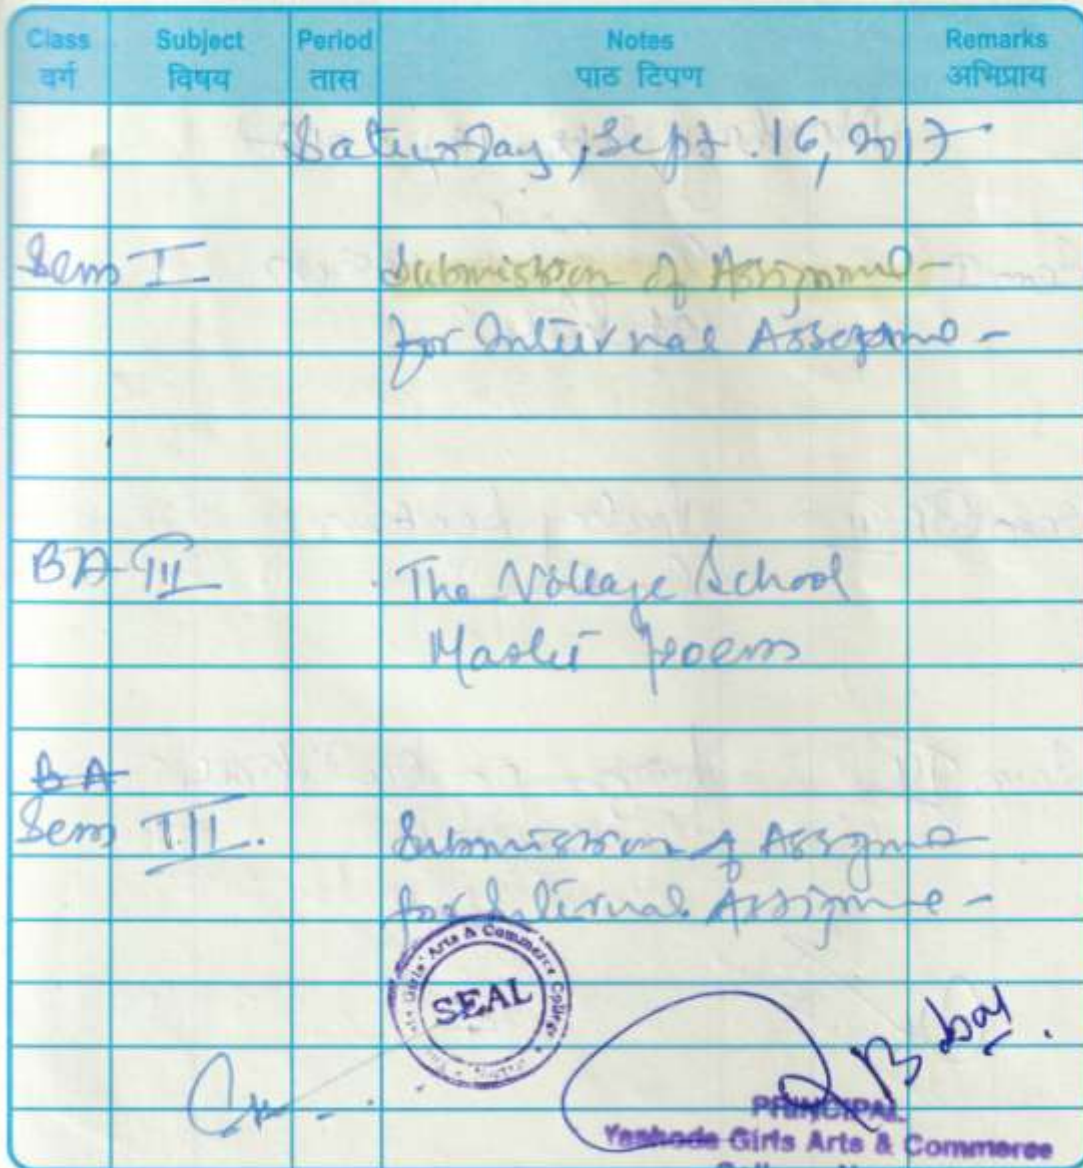 Class Subject Period Notes Remarks
वर्ग विषय तास पाठ टिपण अभिप्राय
Saturday, Sept. 16, 2017
Sem I Submission of Assignme-
for Internal Assessme-
BA-III The Village School
Master poem
BA
Sem III. Submission of Assignme
for Internal Assignme-
Girls' Arts & Commerce College
SEAL
PRINCIPAL
Yashoda Girls Arts & Commerce